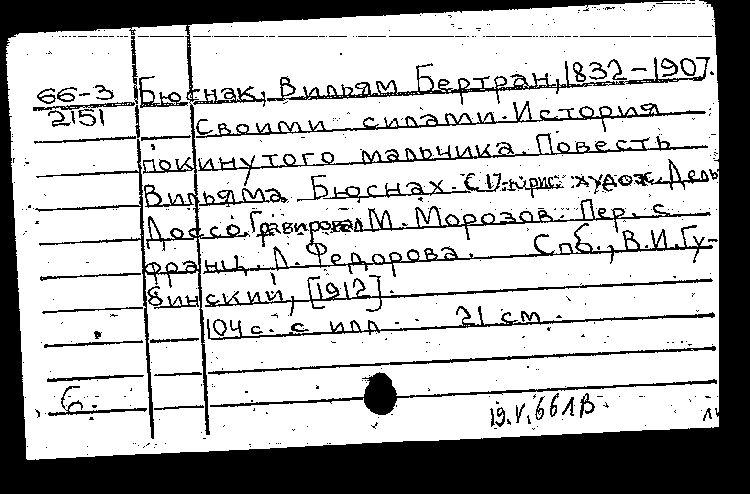 66-3 Бюснак, Вильям Бертран, 1832-1907.
2151
Своими силами. История
покинутого мальчика. Повесть
Вильяма Бюснах. С 17-ю рис. худож. Дель
Доссо. Гравировал М. Морозов. Пер. с
франц. Л. Федорова. Спб., В.И. Гу-
бинский, [1912].
104 с. с илл. 21 см.
б.
19.V.66